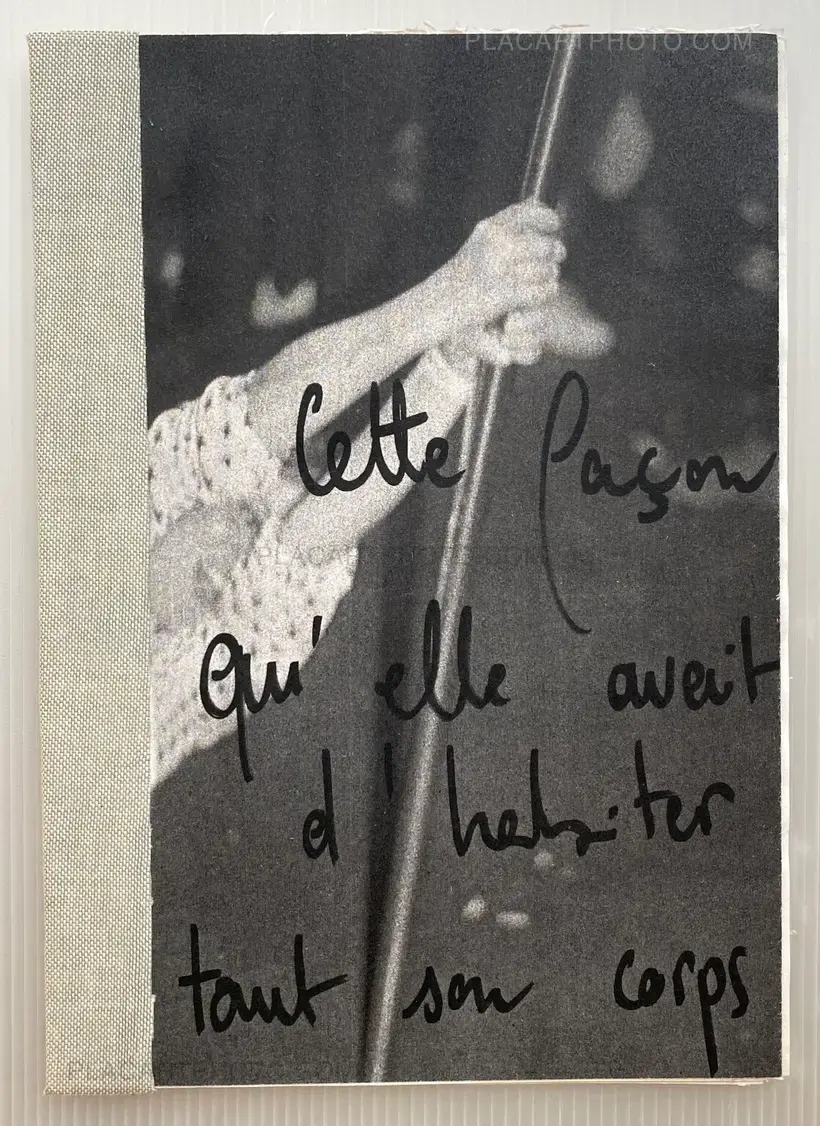 PLACARTPHOTO.COM
Cette façon
qu'elle avait
d'habiter
tout son corps